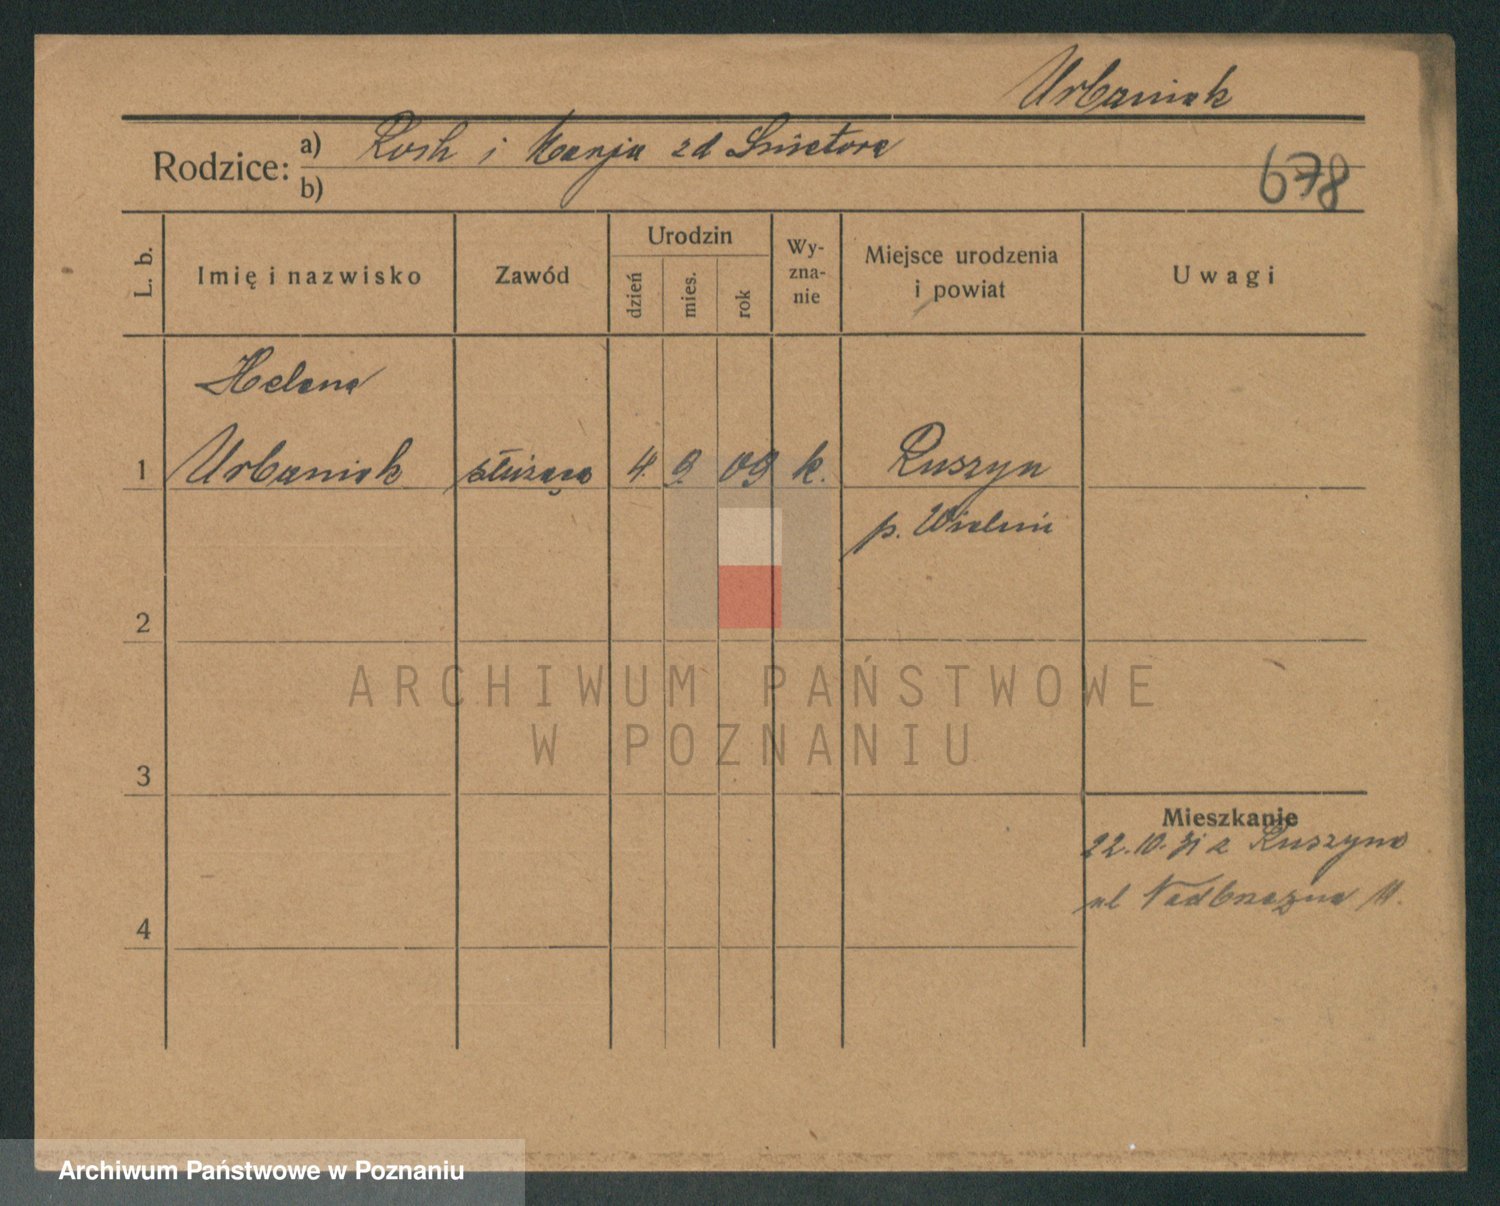 Urbaniak
Rodzice:
a) Roch i Marja zd
b)
678
L. b.
Imię i nazwisko
Zawód
Urodzin
dzień
mies.
rok
Wy-
zna-
nie
Miejsce urodzenia
i powiat
Uwagi
Helena
1 Urbaniak służąca 4. 9. 09 k. Ruszyn
p. Wieluń
2
ARCHIWUM PAŃSTWOWE
W POZNANIU
3
Mieszkanie
22.10.31 z Ruszyna
ul Nadbrzeżna
4
Archiwum Państwowe w Poznaniu